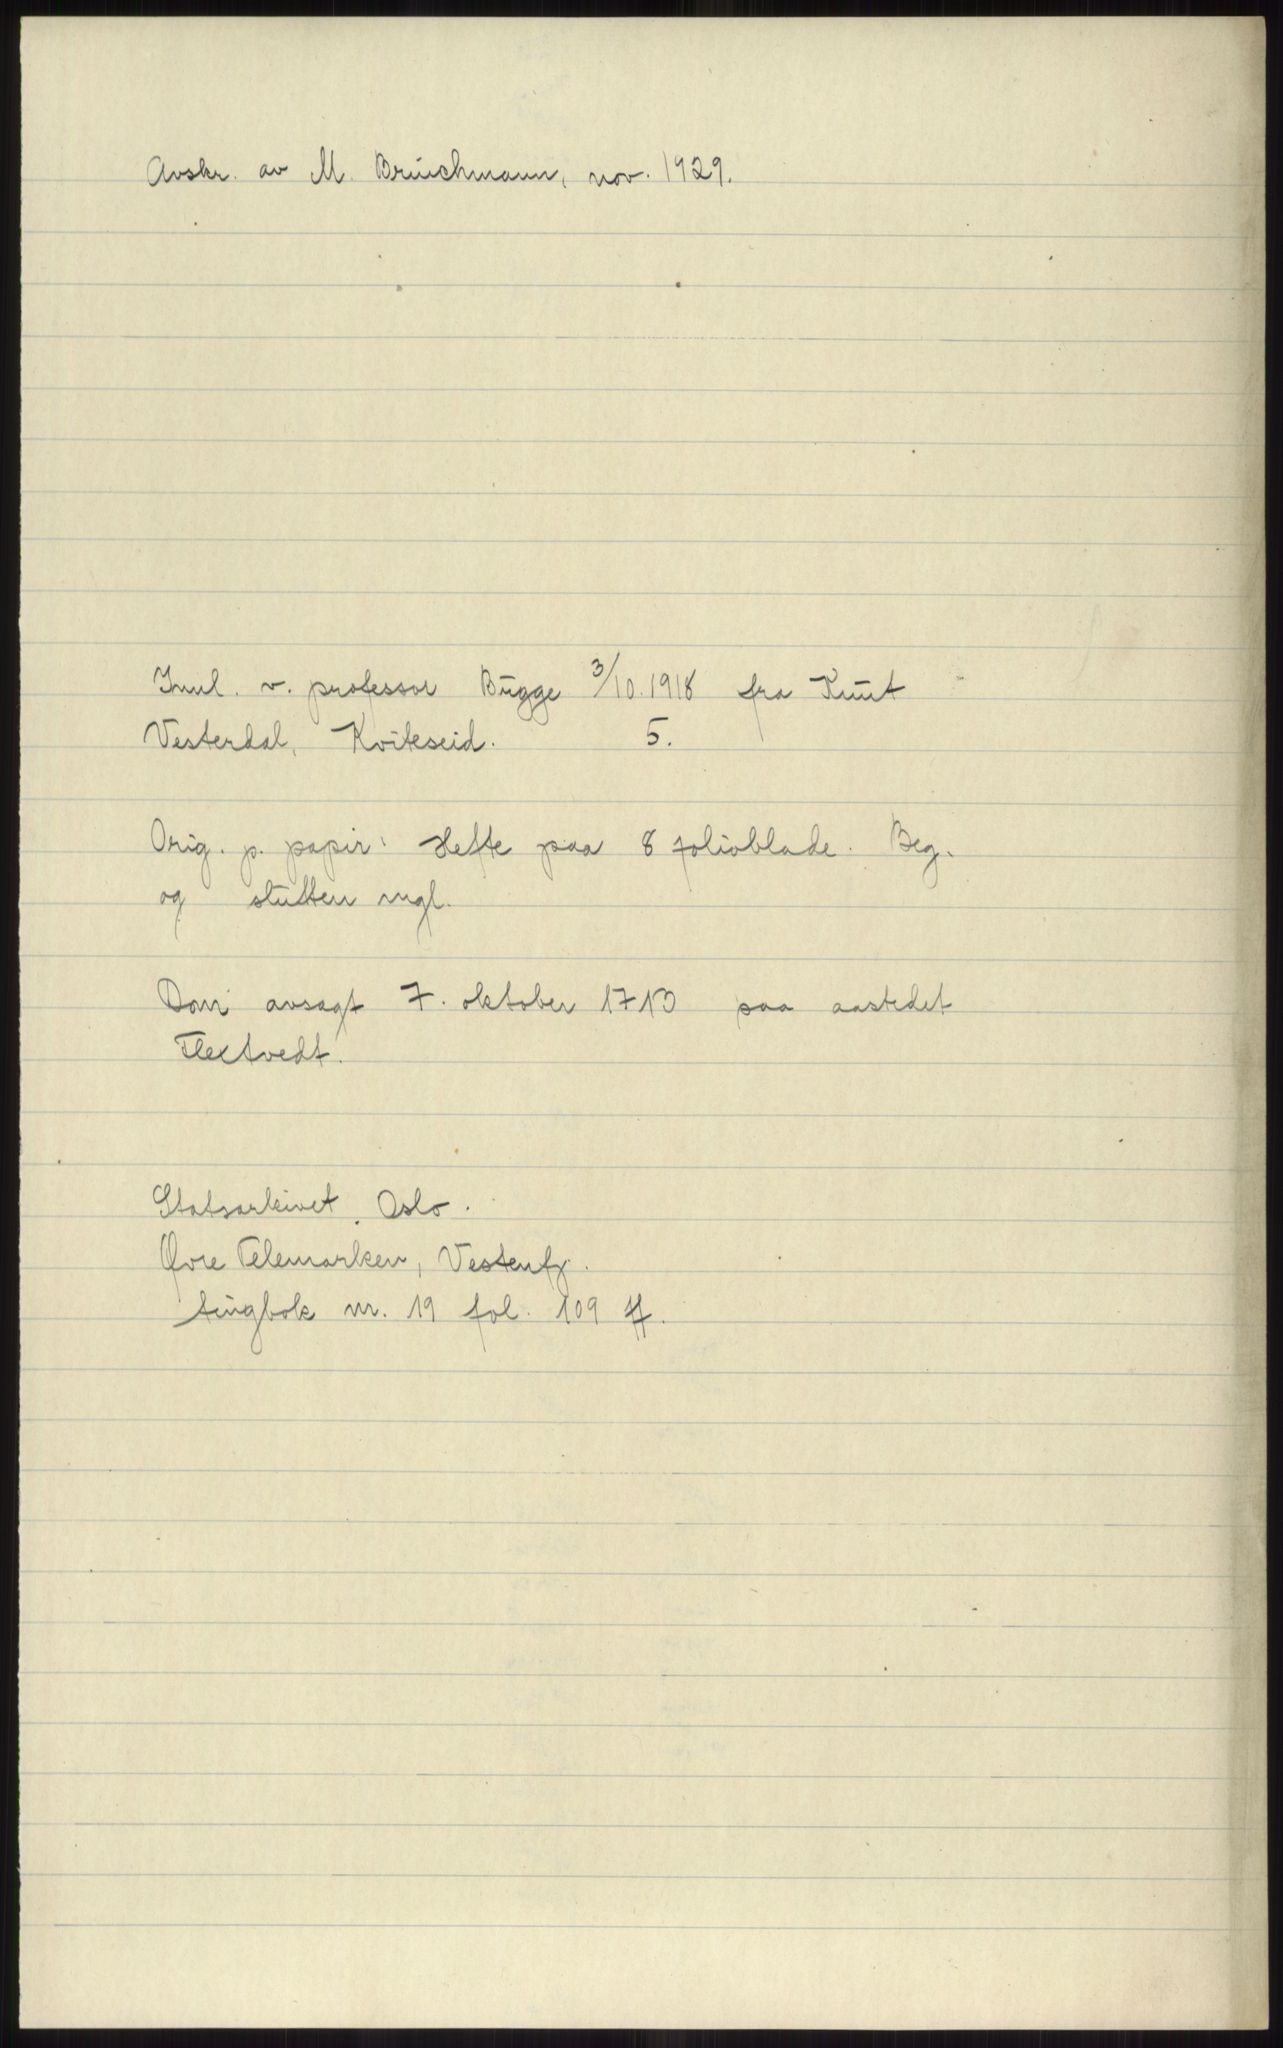 Avskr. av M. Brinchmann, nov. 1929.
Innl. v. professor Bugge 3/10.1918 fra Knut
Vesterdal, Kviteseid. 5.
Orig. p. papir: Hefte paa 8 folioblade. Beg.
og slutten mgl.
Dom avsagt 7. oktober 1713 paa aastedet
Statsarkivet, Oslo.
Øvre Telemarken, Vestenfj.
tingbok nr. 19 fol. 109 ff.